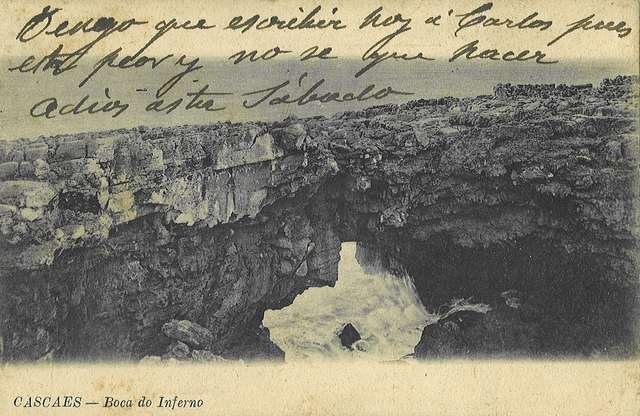 Tengo que escribir hoy á Carlos pues
esta peor y no se que hacer
Adios asta Sábado
CASCAES — Boca do Inferno